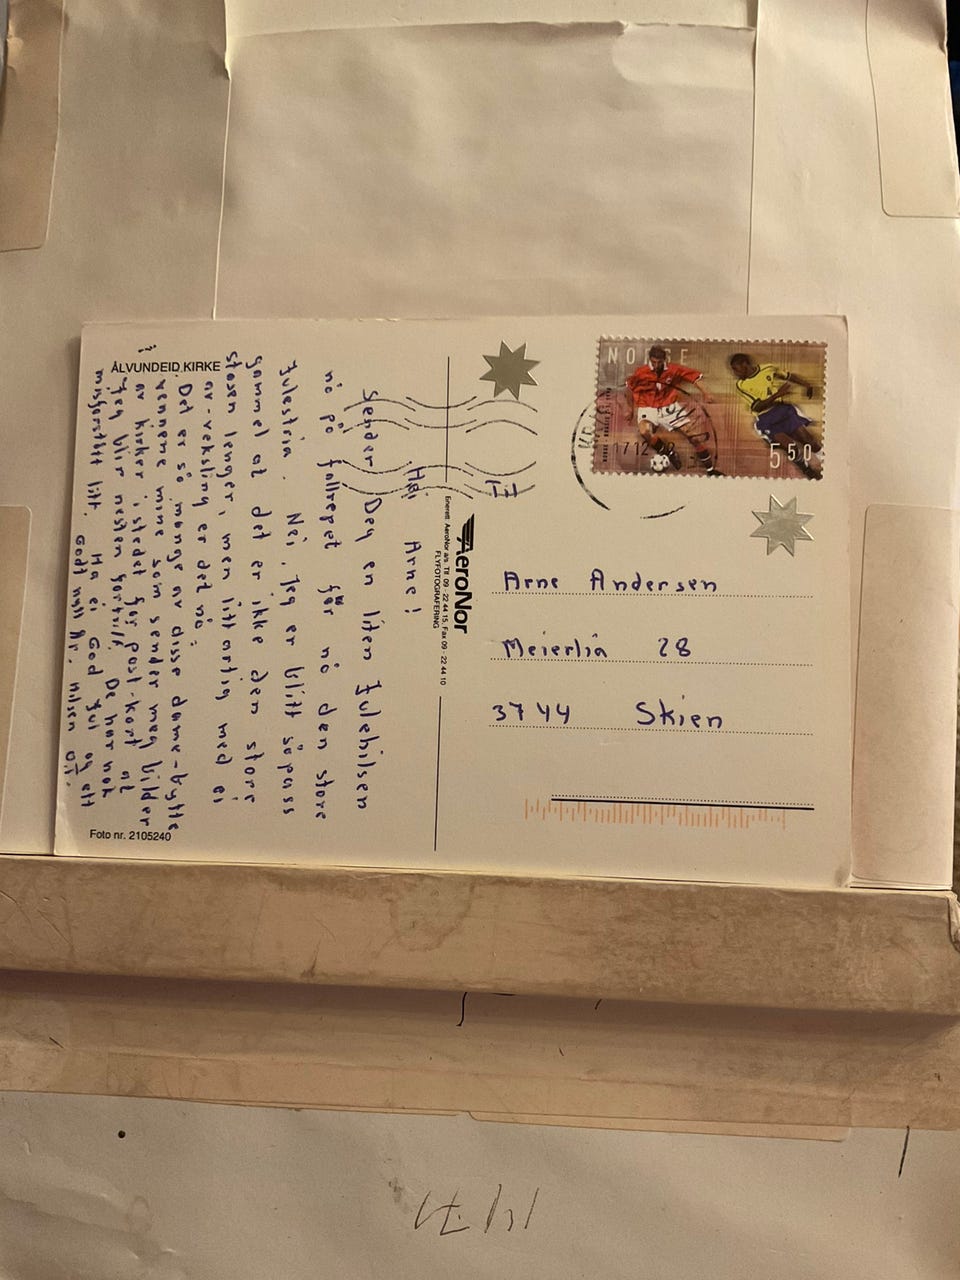 ÅLVUNDEID KIRKE
Hei Arne!
Sender Deg en liten Julehilsen
nå på fallrepet før nå den store
Julestria. Nei, Jeg er blitt såpass
gammel at det er ikke den store
stasen lenger, men litt artig med ei
av-veksling er det nå.
Det er så mange av disse dame-bytte
vennene mine som sender meg bilder
av kirker i stedet for post-kort at
Jeg blir nesten fortvilt. De har nok
misforstått litt. Ha ei God Jul og ett
Godt nytt År. Nilsen
Foto nr. 2105240
AeroNor
FLYFOTOGRAFERING
Enerett: AeroNor a/s. Tlf. 09 - 22 44 15. Fax 09 - 22 44 10
NORGE
5 50
17 12
Arne Andersen
Meierlia 28
3744 Skien